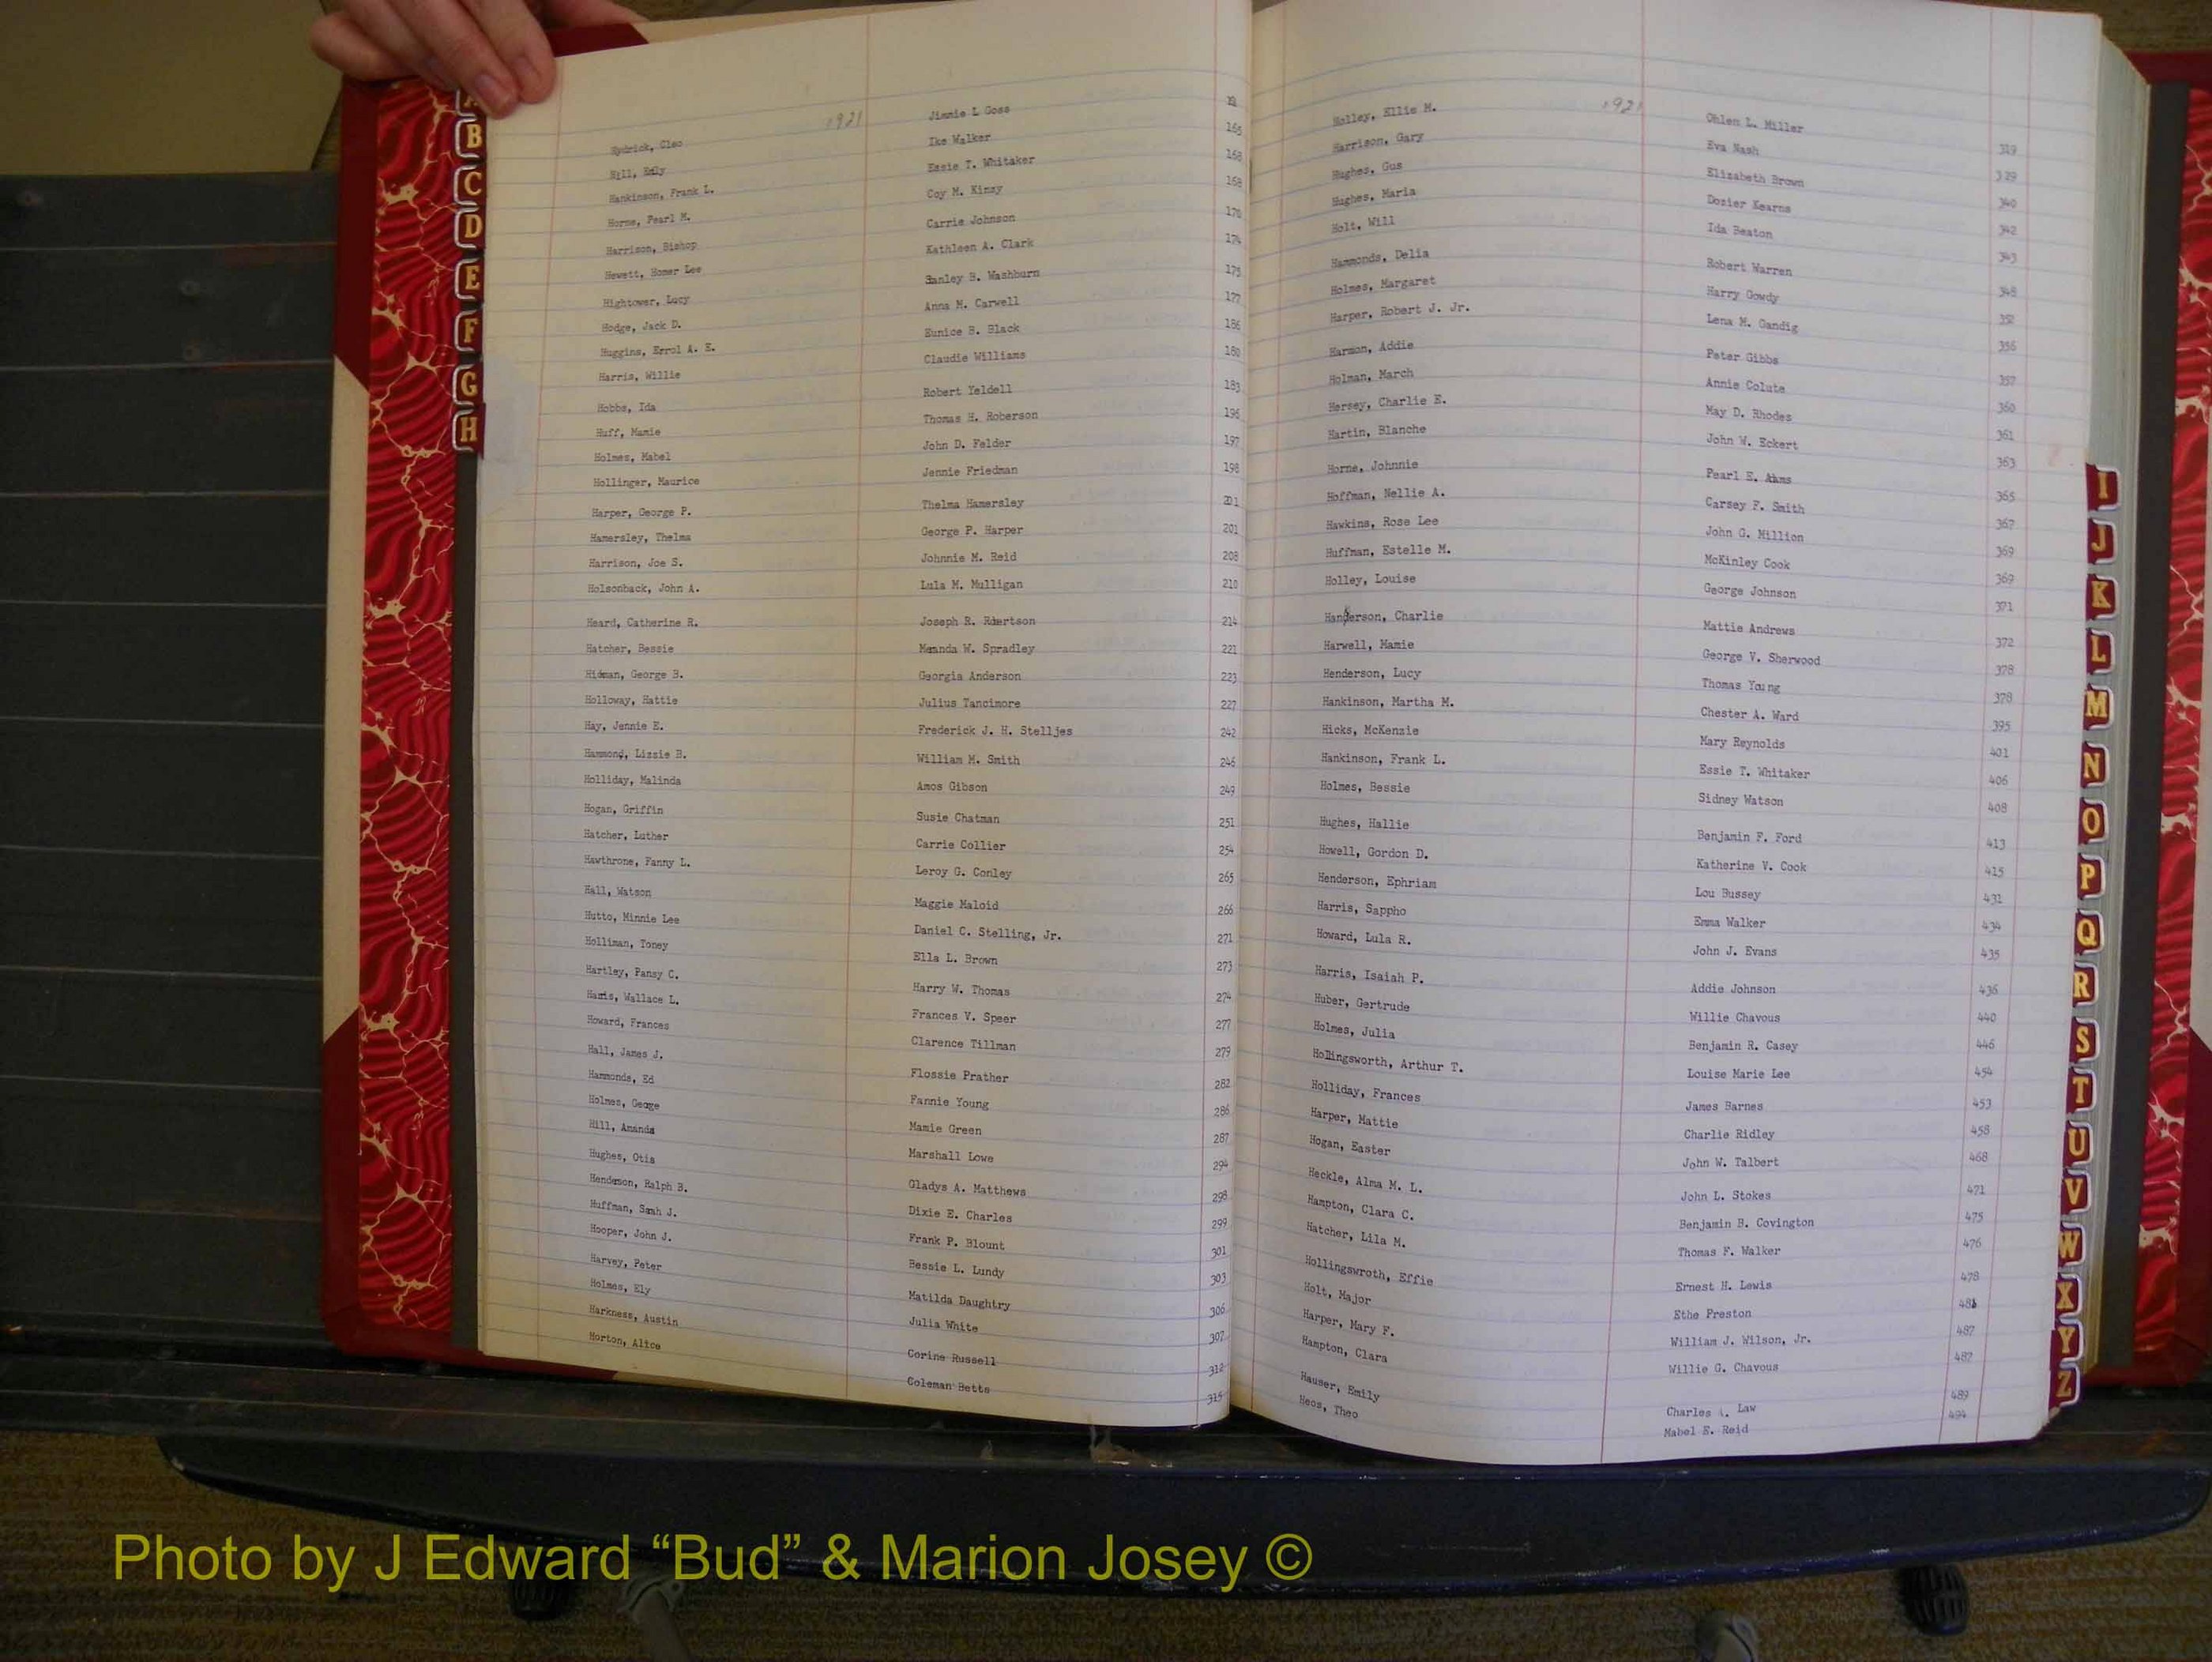 1921
1921
Hydrick, Cleo Jimmie L Goss
Hill, Emly Ike Walker 165
Hankinson, Frank L. Essie T. Whitaker 168
Horne, Pearl M. Coy M. Kinsy 168
Harrison, Bishop Carrie Johnson 170
Hewett, Homer Lee Kathleen A. Clark 174
Hightower, Lucy Sanley B. Washburn 175
Hodge, Jack D. Anna M. Carwell 177
Huggins, Errol A. E. Eunice B. Black 186
Harris, Willie Claudie Williams 180
Hobbs, Ida Robert Yeldell 183
Huff, Mamie Thomas H. Roberson 196
Holmes, Mabel John D. Felder 197
Hollinger, Maurice Jennie Friedman 198
Harper, George P. Thelma Hamersley 201
Hamersley, Thelma George P. Harper 201
Harrison, Joe S. Johnnie M. Reid 208
Holsonback, John A. Lula M. Mulligan 210
Heard, Catherine R. Joseph R. Robertson 214
Hatcher, Bessie Meanda W. Spradley 221
Hidman, George B. Georgia Anderson 223
Holloway, Hattie Julius Tancimore 227
Hay, Jennie E. Frederick J. H. Stelljes 242
Hammond, Lizzie B. William M. Smith 246
Holliday, Malinda Amos Gibson 249
Hogan, Griffin Susie Chatman 251
Hatcher, Luther Carrie Collier 254
Hawthrone, Fanny L. Leroy G. Conley 265
Hall, Watson Maggie Maloid 266
Hutto, Minnie Lee Daniel C. Stelling, Jr. 271
Holliman, Toney Ella L. Brown 273
Hartley, Pansy C. Harry W. Thomas 274
Harris, Wallace L. Frances V. Speer 277
Howard, Frances Clarence Tillman 279
Hall, James J. Flossie Prather 282
Hammonds, Ed Fannie Young 286
Holmes, George Mamie Green 287
Hill, Amanda Marshall Lowe 294
Hughes, Otis Gladys A. Matthews 298
Henderson, Ralph B. Dixie E. Charles 299
Huffman, Sarah J. Frank P. Blount 301
Hooper, John J. Bessie L. Lundy 303
Harvey, Peter Matilda Daughtry 306
Holmes, Ely Julia White 307
Harkness, Austin Corine Russell 312
Horton, Alice Coleman Betts 315
Holley, Ellie M. Ohlen L. Miller 319
Harrison, Gary Eva Nash 329
Hughes, Gus Elizabeth Brown 340
Hughes, Maria Dozier Kearns 342
Holt, Will Ida Beaton 343
Hammonds, Delia Robert Warren 348
Holmes, Margaret Harry Gowdy 352
Harper, Robert J. Jr. Lena M. Gandig 356
Harmon, Addie Peter Gibbs 357
Holman, March Annie Colute 360
Hersey, Charlie E. May D. Rhodes 361
Hartin, Blanche John W. Eckert 363
Horne, Johnnie Pearl E. Adams 365
Hoffman, Nellie A. Carsey F. Smith 367
Hawkins, Rose Lee John G. Million 369
Huffman, Estelle M. McKinley Cook 369
Holley, Louise George Johnson 371
Handerson, Charlie Mattie Andrews 372
Harwell, Mamie George V. Sherwood 378
Henderson, Lucy Thomas Young 378
Hankinson, Martha M. Chester A. Ward 395
Hicks, McKenzie Mary Reynolds 401
Hankinson, Frank L. Essie T. Whitaker 406
Holmes, Bessie Sidney Watson 408
Hughes, Hallie Benjamin F. Ford 413
Howell, Gordon D. Katherine V. Cook 415
Henderson, Ephriam Lou Bussey 431
Harris, Sappho Emma Walker 434
Howard, Lula R. John J. Evans 435
Harris, Isaiah P. Addie Johnson 436
Huber, Gertrude Willie Chavous 440
Holmes, Julia Benjamin R. Casey 446
Hollingsworth, Arthur T. Louise Marie Lee 454
Holliday, Frances James Barnes 453
Harper, Mattie Charlie Ridley 458
Hogan, Easter John W. Talbert 468
Heckle, Alma M. L. John L. Stokes 471
Hampton, Clara C. Benjamin B. Covington 475
Hatcher, Lila M. Thomas F. Walker 476
Hollingswroth, Effie Ernest H. Lewis 478
Holt, Major Ethe Preston
Harper, Mary F. William J. Wilson, Jr. 487
Hampton, Clara Willie G. Chavous 487
Hauser, Emily Charles A. Law 489
Heos, Theo Mabel E. Reid 494
A
B
C
D
E
F
G
H
I
J
K
L
M
N
O
P
Q
R
S
T
U
V
W
X
Y
Z
Photo by J Edward “Bud” & Marion Josey ©